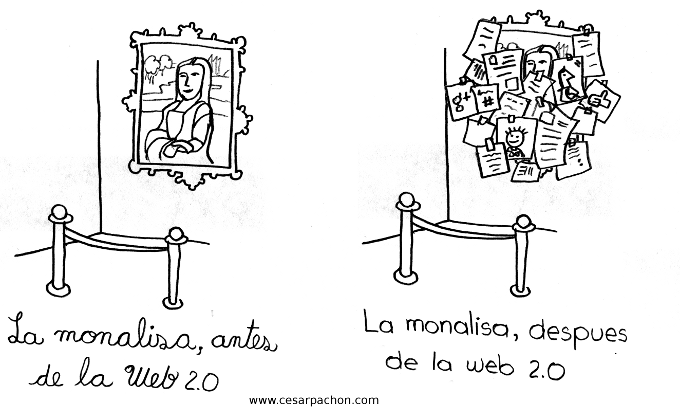 g+
#
La monalisa, antes
de la Web 2.0
La monalisa, despues
de la web 2.0
www.cesarpachon.com